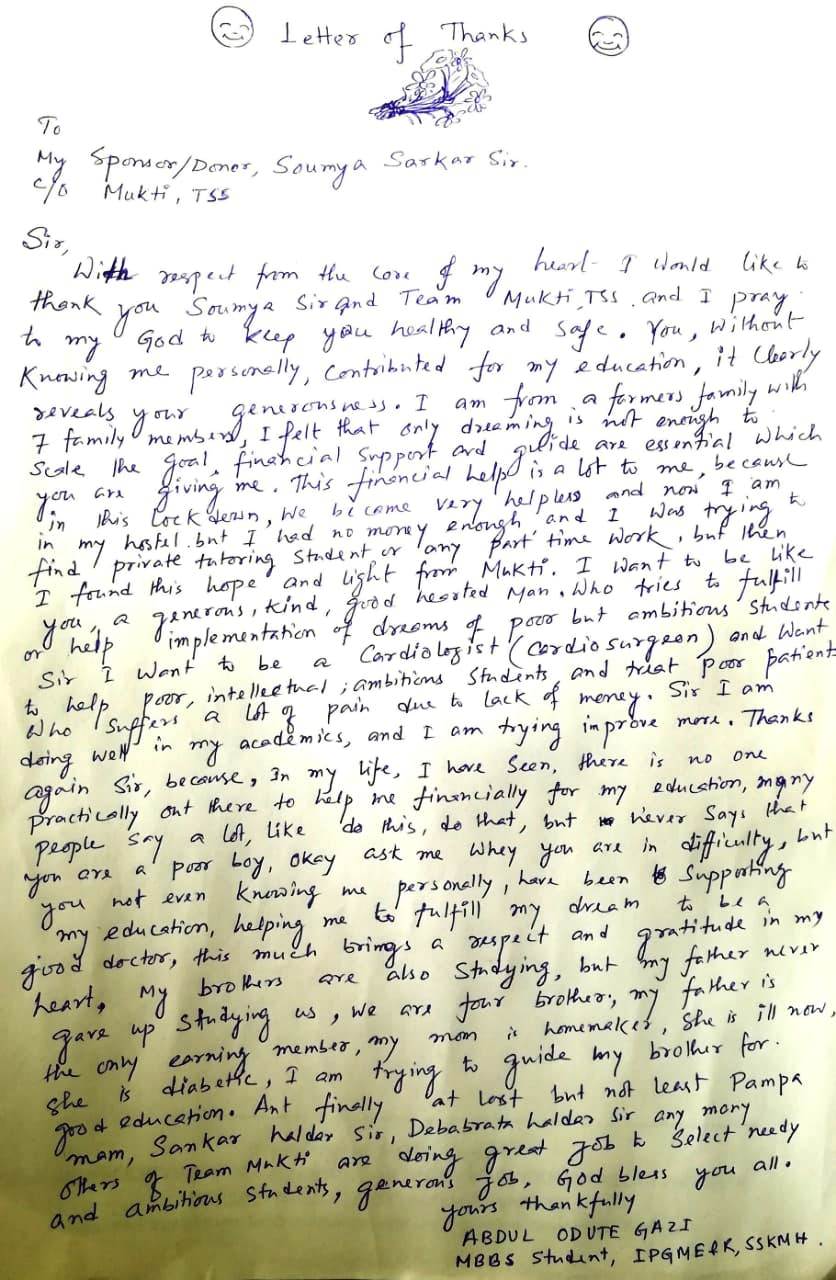 Letter of Thanks
To
My Sponsor/Donor, Soumya Sarkar Sir.
c/o Mukti, TSS
Sir,
With respect from the core of my heart I would like to
thank you Soumya Sir and Team Mukti, TSS. and I pray
to my God to keep you healthy and safe. You, without
Knowing me personally, Contributed for my education, it Clearly
reveals your generousness. I am from a farmers family with
7 family members, I felt that only dreaming is not enough to
Scale the goal, financial support and guide are essential which
you are giving me. This financial help is a lot to me, because
in this lockdown, We became very helpless and now I am
in my hostel. but I had no money enough and I was trying to
find private tutoring student or any part time work, but then
I found this hope and light from Mukti. I want to be like
you, a generous, kind, good hearted Man. Who tries to fulfill
or help implementation of dreams of poor but ambitious students
Sir I want to be a Cardiologist (Cardiosurgeon) and want
to help poor, intellectual, ambitious Students, and treat poor patients
Who Suffers a lot of pain due to lack of money. Sir I am
doing well in my academics, and I am trying improve more. Thanks
again Sir, because, In my life, I have seen, there is no one
practically out there to help me financially for my education, many
people say a lot, like do this, do that, but never says that
you are a poor boy, okay ask me whey you are in difficulty, but
you not even knowing me personally, have been supporting
my education, helping me to fulfill my dream to be a
good doctor, this much brings a respect and gratitude in my
heart, My brothers are also Studying, but my father never
gave up studying us, we are four brother, my father is
the only earning member, my mom is homemaker, She is ill now,
She is diabetic, I am trying to guide my brother for
good education. Ant finally at last but not least Pampa
mam, Sankar haldar Sir, Debabrata haldar Sir any many
others of Team Mukti are doing great job to Select needy
and ambitious students, generous job, God bless you all.
yours thankfully
ABDUL ODUTE GAZI
MBBS Student, IPGME&R, SSKMH.